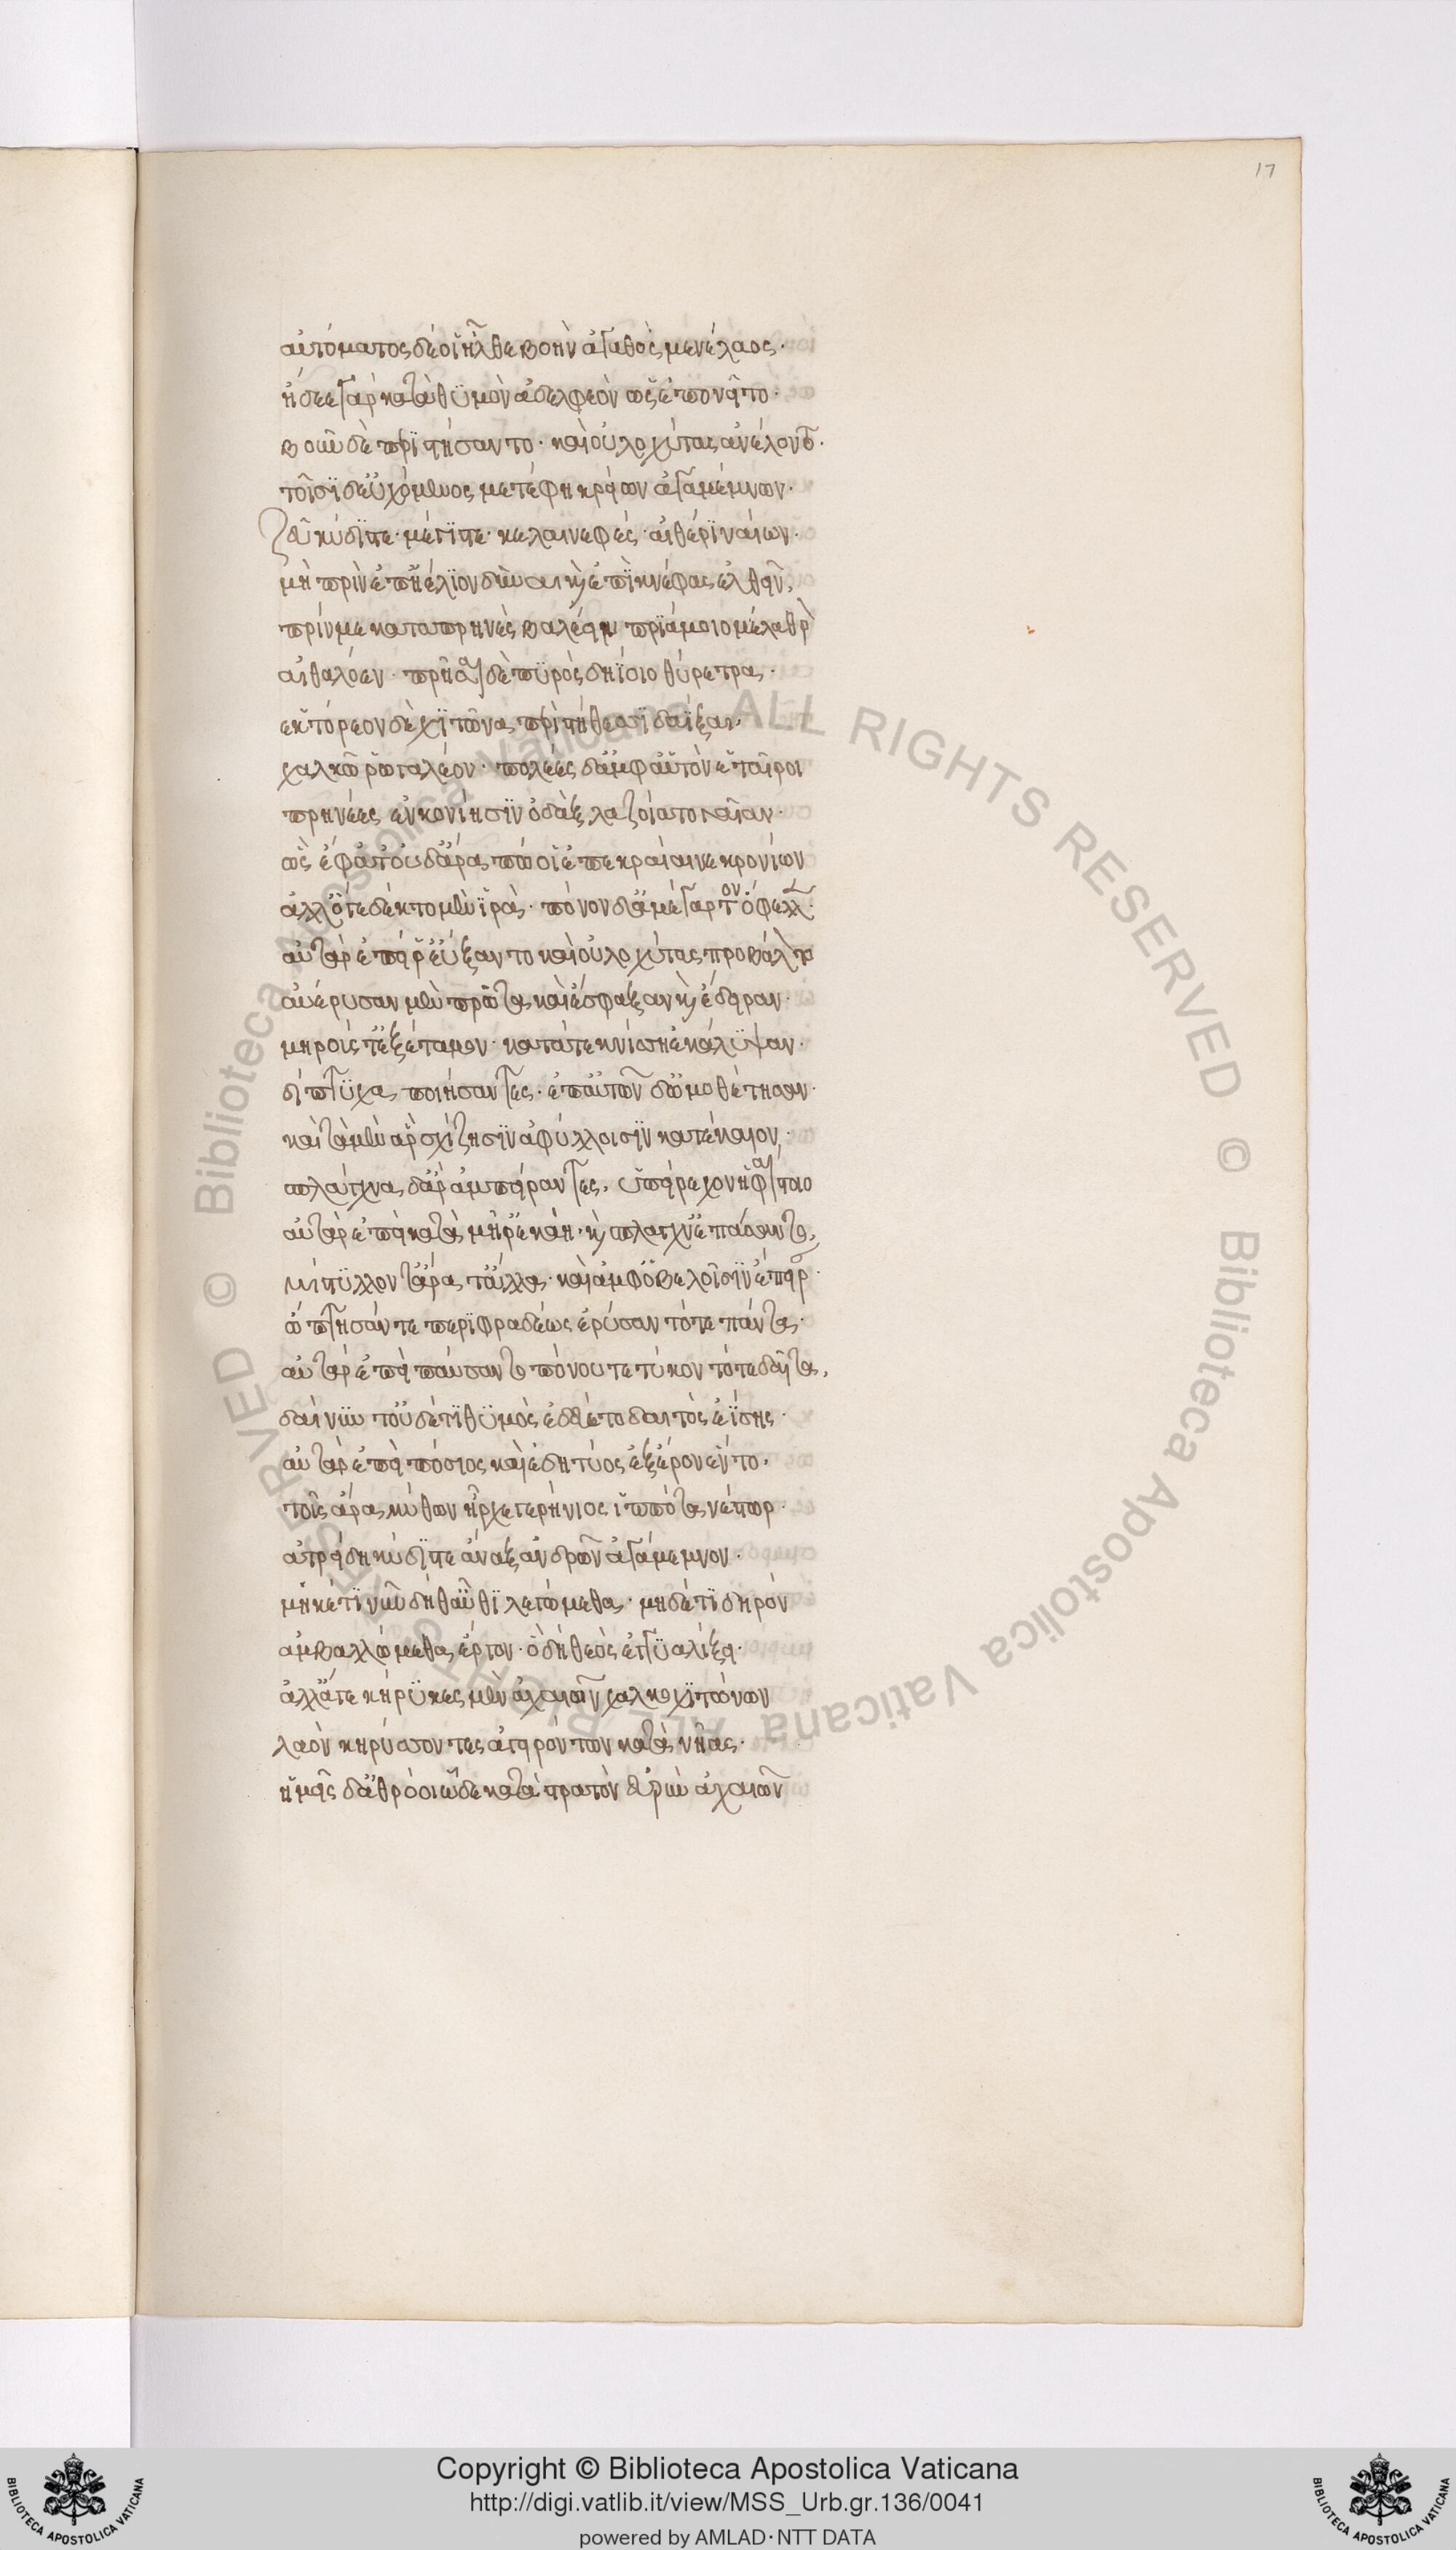 17
αὐτόματος δέ οἱ ἦλθε βοὴν ἀγαθὸς μενέλαος·
ᾔδεε γὰρ κατὰ θυμὸν ἀδελφεὸν ὡς ἐπονεῖτο·
βοῦν δὲ περιστήσαντο· καὶ οὐλοχύτας ἀνέλοντο·
τοῖσι δ' εὐχόμενος μετέφη κρείων ἀγαμέμνων·
Ζεῦ κύδιστε· μέγιστε· κελαινεφές· αἰθέρι ναίων·
μὴ πρὶν ἐπ' ἠέλιον δῦναι καὶ ἐπὶ κνέφας ἐλθεῖν,
πρίν με κατὰ πρηνὲς βαλέειν πριάμοιο μέλαθρον
αἰθαλόεν· πρῆσαι δὲ πυρὸς δηΐοιο θύρετρα·
ἑκτόρεον δὲ χιτῶνα περὶ στήθεσσι δαΐξαι·
χαλκῷ ῥωγαλέον· πολέες δ' ἀμφ' αὐτὸν ἑταῖροι
πρηνέες ἐν κονίῃσιν ὀδὰξ λαζοίατο γαῖαν·
ὣς ἔφατ' οὐδ' ἄρα πώ οἱ ἐπεκραίαινε κρονίων
ἀλλ' ὅγε δέκτο μὲν ἱρὰ· πόνον δ' ἀμέγαρτον ὄφελλεν·
αὐτὰρ ἐπεί ῥ' εὔξαντο καὶ οὐλοχύτας προβάλοντο
αὐέρυσαν μὲν πρῶτα καὶ ἔσφαξαν καὶ ἔδειραν·
μηρούς τ' ἐξέταμον· κατά τε κνίσῃ ἐκάλυψαν·
δίπτυχα ποιήσαντες· ἐπ' αὐτῶν δ' ὠμοθέτησαν·
καὶ τὰ μὲν ἂρ σχίζῃσιν ἀφύλλοισιν κατέκαιον·
σπλάγχνα δ' ἄρ' ἀμπείραντες, ὑπείρεχον ἡφαίστοιο
αὐτὰρ ἐπεὶ κατὰ μῆρ' ἐκάη· καὶ σπλάγχν' ἐπάσαντο,
μίστυλλόν τ' ἄρα τἆλλα· καὶ ἀμφ' ὀβελοῖσιν ἔπειραν·
ὤπτησάν τε περιφραδέως ἐρύσαντό τε πάντα·
αὐτὰρ ἐπεὶ παύσαντο πόνου τετύκοντό τε δαῖτα,
δαίνυντ' οὐδέ τι θυμὸς ἐδεύετο δαιτὸς ἐΐσης·
αὐτὰρ ἐπεὶ πόσιος καὶ ἐδητύος ἐξ ἔρον ἕντο·
τοῖς ἄρα μύθων ἦρχε γερήνιος ἱππότα νέστωρ·
ἀτρείδη κύδιστε ἄναξ ἀνδρῶν ἀγάμεμνον·
μηκέτι νῦν δήθ' αὖθι λεγώμεθα· μηδέ τι δηρόν
ἀμβαλλώμεθα ἔργον· ὃ δὴ θεὸς ἐγγυαλίξει·
ἀλλ' ἄγε κήρυκες μὲν ἀχαιῶν χαλκοχιτώνων
λαὸν κηρύσσοντες ἀγειρόντων κατὰ νῆας·
ἡμεῖς δ' ἀθρόοι ὧδε κατὰ στρατὸν εὐρὺν ἀχαιῶν